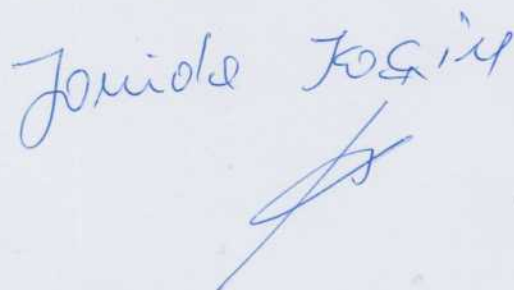 Jonida Koçiu